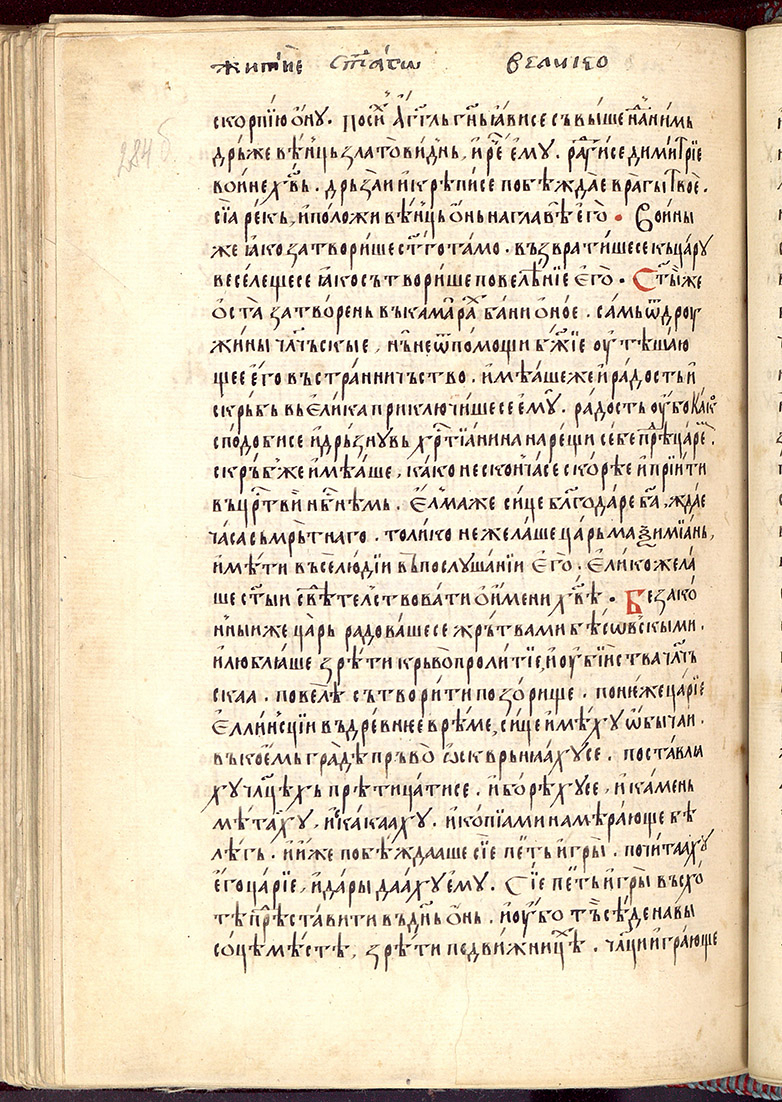 житїе ст҃аго велико
284 б
скорпїю ѻ҆ну . посем́ а҆гг҃ль гн҃ь ꙗ҆ви се съвыше на нимь
дрьже вѣнць злат ѡвидн҃ь , и҆ рече є҆му . радꙋи се димитрїе
воине хв҃ь . дрьзаи и҆ крѣпи се побѣждае врагы твое .
сїа рекь , и҆ положи вѣнць ѻ҆нь на главѣ є҆го . Воины
же ꙗ҆ко затворише ст҃го тамо . възвратише се къ цару
веселеще се ꙗ҆ко сътворише повелѣнїе є҆го . Ст҃ыи же
ѻ҆ста затворень въ камарах бани ѻ҆ное . самь ѿ дроу
жины чл҃чьскые , нь не ѿ помощи бж҃їе оу҆тѣшаю
щее є҆го въ странничьство . и҆мѣаше же и҆ радость и҆
скрьбь в велика приключише се є҆му . радость оу҆бо ꙗ҆ко
сподоби се и҆ дрьзнувь хр҃тїанина нарещи себе прѣ царем .
скрьб же и҆мѣаше , како не сконча се скорѣе и҆ прїити
въ цр҃тви нб҃нѣмь . Єлма же сице благодаре б҃а , ждае
часа сьмрьтнаго . толико не желаше царь маѯимїань ,
и҆мѣти въсе люди въ послушанїи є҆го . є҆лико жела
ше ст҃ыи свѣтелствовати ѻ҆ имени хв҃ѣ . Безако
нныи же царь радоваше се жрьтвами бѣсѡвскыми .
и҆ люблꙗше зрѣти крьвопролитїе , и҆ оу҆бїиства чл҃чь
скаа . повелѣ сътворити позорище . понеже царїе
є҆ллинсции въ древнее врѣме , сице и҆мѣху ѡ҆бычаи .
въ коемь градѣ прьво ѡ҆скврьнꙗху се . поставлꙗ
ху члц҃ѣхь прѣтицати се . и҆ борѣху се , и҆ камень
мѣтаху , и҆ скакааху . и҆ копїами намѣрающе бѣ
лѣгь . и҆ и҆же побѣждааше сїе петь и҆гры . почитааху
є҆го царїе , и҆ дары даахꙋ є҆му . Сїе петь и҆гры въсхо
тѣ прѣставити въ дн҃ь ѻ҆нь . и҆ оу҆бо тъ сѣде на вы
соцѣ мѣстѣ , зрѣти подвижницѣ . чл҃ци и҆грающе